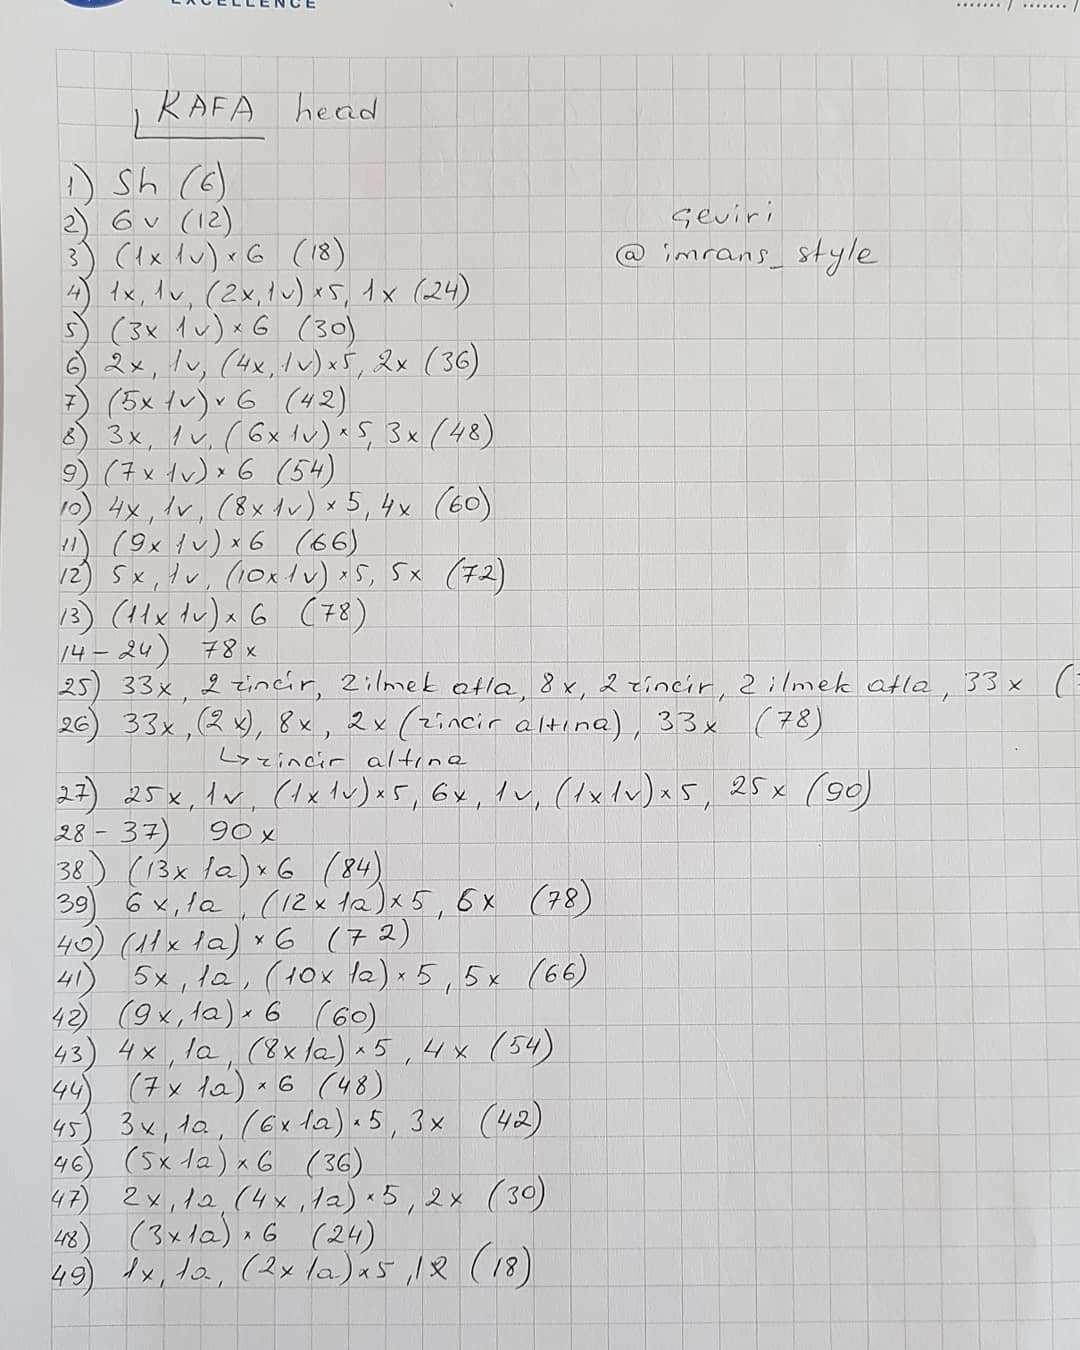 EXCELLENCE
KAFA head
1) Sh (6)
2) 6v (12)
3) (1x 1v) × 6 (18)
4) 1x, 1v, (2x, 1v) ×5, 1x (24)
5) (3x 1v) × 6 (30)
6) 2x, 1v, (4x, 1v) ×5, 2x (36)
7) (5x 1v) × 6 (42)
8) 3x, 1v, (6x 1v) × 5, 3x (48)
9) (7x 1v) × 6 (54)
10) 4x, 1v, (8x 1v) × 5, 4x (60)
11) (9x 1v) × 6 (66)
12) 5x, 1v, (10x 1v) ×5, 5x (72)
13) (11x 1v) × 6 (78)
14-24) 78x
25) 33x, 2 zincir, 2 ilmek atla, 8x, 2 zincir, 2 ilmek atla, 33x (
26) 33x, (2x), 8x, 2x (zincir altına), 33x (78)
↳ zincir altına
27) 25x, 1v, (1x 1v) ×5, 6x, 1v, (1x 1v) ×5, 25x (90)
28-37) 90x
38) (13x 1a) × 6 (84)
39) 6x, 1a, (12x 1a) ×5, 6x (78)
40) (11x 1a) × 6 (72)
41) 5x, 1a, (10x 1a) × 5, 5x (66)
42) (9x, 1a) × 6 (60)
43) 4x, 1a, (8x 1a) × 5, 4x (54)
44) (7x 1a) × 6 (48)
45) 3x, 1a, (6x 1a) × 5, 3x (42)
46) (5x 1a) × 6 (36)
47) 2x, 1a, (4x, 1a) × 5, 2x (30)
48) (3x 1a) × 6 (24)
49) 1x, 1a, (2x 1a) ×5, (18)
çeviri
@imrans_style